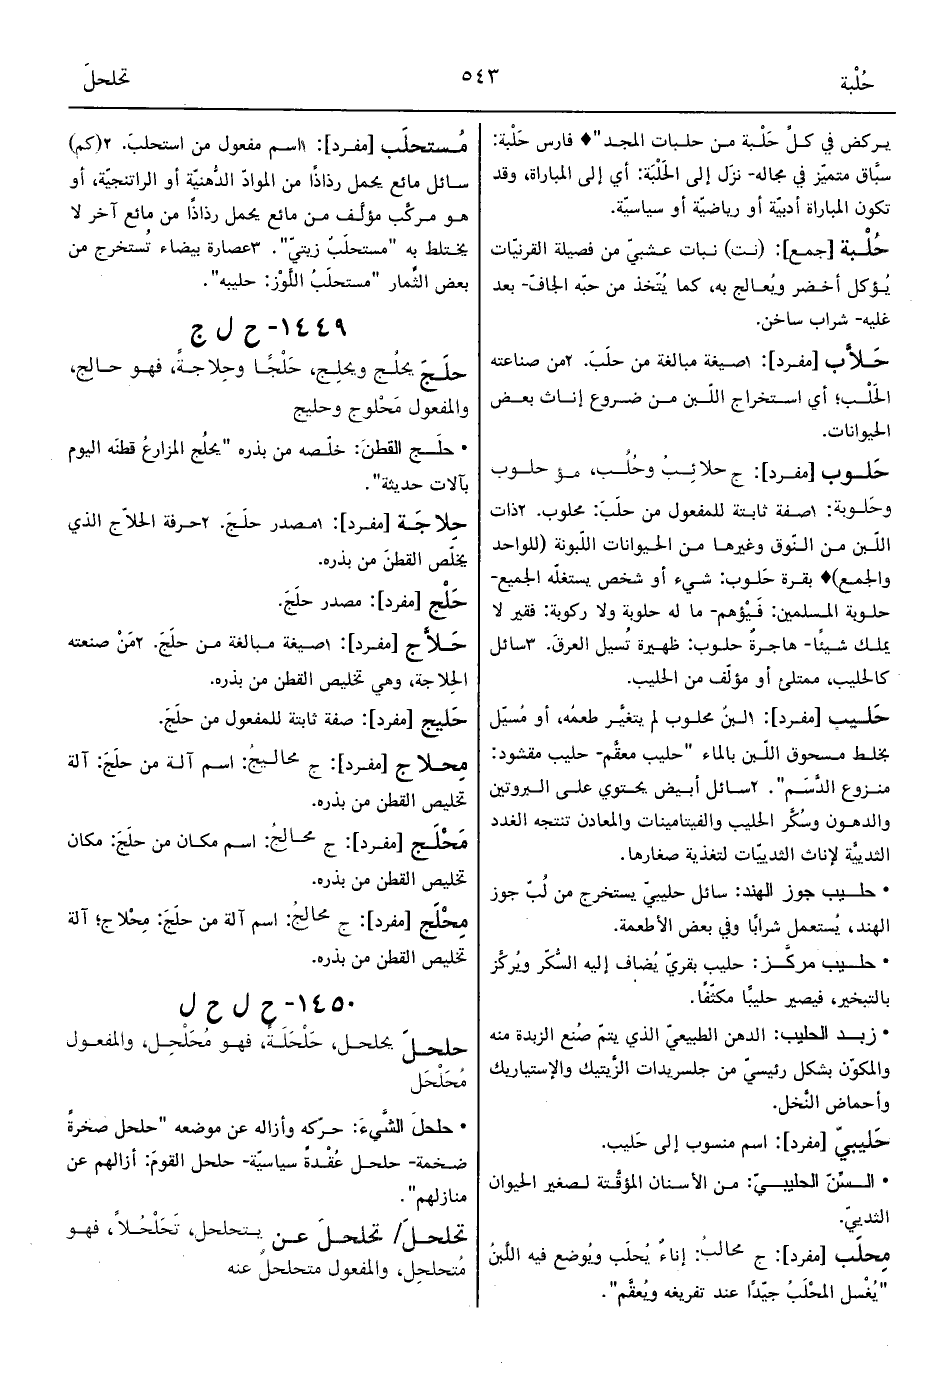 حُلْبة
٥٤٣
تحلحلَ
يـركض في كـلِّ حَلْبة مـن حلبات المجد"♦ فارس حَلْبة:
سبَّاق متميّز في مجاله- نزَل إلى الحَلْبَة: أي إلى المباراة، وقد
تكون المباراة أدبيّة أو رياضيّة أو سياسيّة.
حُلْـبة [جمع]: (نـت) نبـات عـشبيّ من فصيلة القرنيّات
يُـؤكل أخـضر ويُعـالج به، كما يُتّخذ من حبّه الجافّ- بعد
غليه- شراب ساخن.
حَـلاَّب [مفرد]: ١صيغة مبالغة من حلَبَ. ٢من صناعته
الحَلْـب؛ أي اسـتخراج اللّـبن مـن ضـروع إنـاث بعـض
الحيوانات.
حَلـوب [مفرد]: ج حلائِـبُ وحُلُـب، مـؤ حلـوب
وحَلوبة: ١صفة ثابتة للمفعول من حلَبَ: محلوب. ٢ذات
اللّـبن مـن الـنّوق وغيرهـا مـن الحـيوانات اللّبونة (للواحد
والجمع)♦ بقرة حَلوب: شيء أو شخص يستغلّه الجميع-
حلـوبة المـسلمين: فَيْؤهـم- ما له حلوبة ولا ركوبة: فقير لا
يملـك شـيئًا- هاجـرةٌ حلـوب: ظهيرة تُسيل العرق. ٣سائل
كالحليب، ممتلئ أو مؤلّف من الحليب.
حَلـيب [مفرد]: ١لـبنٌ محلوب لم يتغيَّـر طعمُه، أو مُسيَّل
يخلط مـسحوق اللّـبن بالماء "حليب معقَّم- حليب مقشود:
منـزوع الدَّسَم". ٢سـائل أبـيض يحتوي علـى الـبروتين
والدهـون وسُكَّر الحليب والفيتامينات والمعادن تنتجه الغدد
الثديـيَّة لإناث الثدييّات لتغذية صغارها.
• حلـيب جوز الهند: سـائل حليبيّ يستخرج من لُبّ جوز
الهند، يُستعمل شرابًا وفي بعض الأطعمة.
• حلـيب مركَّـز: حليب بقريّ يُضاف إليه السُّكّر ويُركَّز
بالتبخير، فيصير حليبًا مكثّفًا.
• زبـد الحليب: الدهن الطبيعيّ الذي يتمّ صُنع الزبدة منه
والمكوّن بشكل رئيسيّ من جلسريدات الزَّيتيك والإستياريك
وأحماض النَّخل.
حَليبيّ [مفرد]: اسم منسوب إلى حَليب.
• الـسِّنّ الحليبـيّ: مـن الأسـنان المؤقَّـتة لـصغير الحيوان
الثدييّ.
مِحلَب [مفرد]: ج محالبُ: إناءٌ يُحلَب ويُوضع فيه اللَّبنُ
"يُغْسل المحْلَبُ جيّدًا عند تفريغه ويُعقَّم".
مُـستحلَب [مفـرد]: ١اسـم مفعول مـن استحلبَ. ٢(كم)
سـائل مائع يحمل رذاذًا من الموادّ الدُّهنيّة أو الراتنجيّة، أو
هـو مـركّب مؤلَّـف مـن مائع يحمل رذاذًا من مائع آخر لا
يخـتلط به "مستحلَبٌ زيتيّ". ٣عصارة بيضاء تُستخرج من
بعض الثِّمار "مستحلَبُ اللَّوْز: حليبه".
١٤٤٩- ح ل ج
حلَـجَ يحلُـج ويحلِـج، حَلْجًـا وحِلاجـةً، فهـو حـالِج،
والمفعول مَحْلوج وحليج
• حلَـج القطـنَ: خلّـصه من بذره "يحلُج المزارعُ قطنَه اليوم
بآلات حديثة".
حِلاجَـة [مفرد]: ١مـصدر حلَـجَ. ٢حرفة الحلاّج الذي
يخلّص القطنَ من بذره.
حَلْج [مفرد]: مصدر حلَجَ.
حَـلاَّج [مفـرد]: ١صـيغة مـبالغة مـن حلَـجَ. ٢مَنْ صنعته
الحِلاجة، وهي تخليص القطن من بذره.
حَليج [مفرد]: صفة ثابتة للمفعول من حلَجَ.
مِحـلاج [مفرد]: ج محالـيجُ: اسـم آلـة من حلَجَ: آلة
تخليص القطن من بذره.
مَحْلَـج [مفـرد]: ج محـالجُ: اسم مكـان من حلَجَ: مكان
تخليص القطن من بذره.
مِحْلَج [مفرد]: ج محالجُ: اسم آلة من حلَجَ: مِحْلاج؛ آلة
تخليص القطن من بذره.
١٤٥٠- ح ل ح ل
حلحـلَ يحلحـل، حَلْحَلَـةً، فهـو مُحَلْحِـل، والمفعـول
مُحَلْحَل
• حلحلَ الشَّيءَ: حـرّكه وأزاله عن موضعه "حلحل صخرةً
ضـخمة- حلحـل عُقْـدةً سياسيّة- حلحل القومَ: أزالهم عن
منازلهم".
تحلحـلَ/ تحلحـلَ عـن يـتحلحل، تَحَلْحُـلاً، فهـو
مُتحلحِل، والمفعول متحلحَل عنه